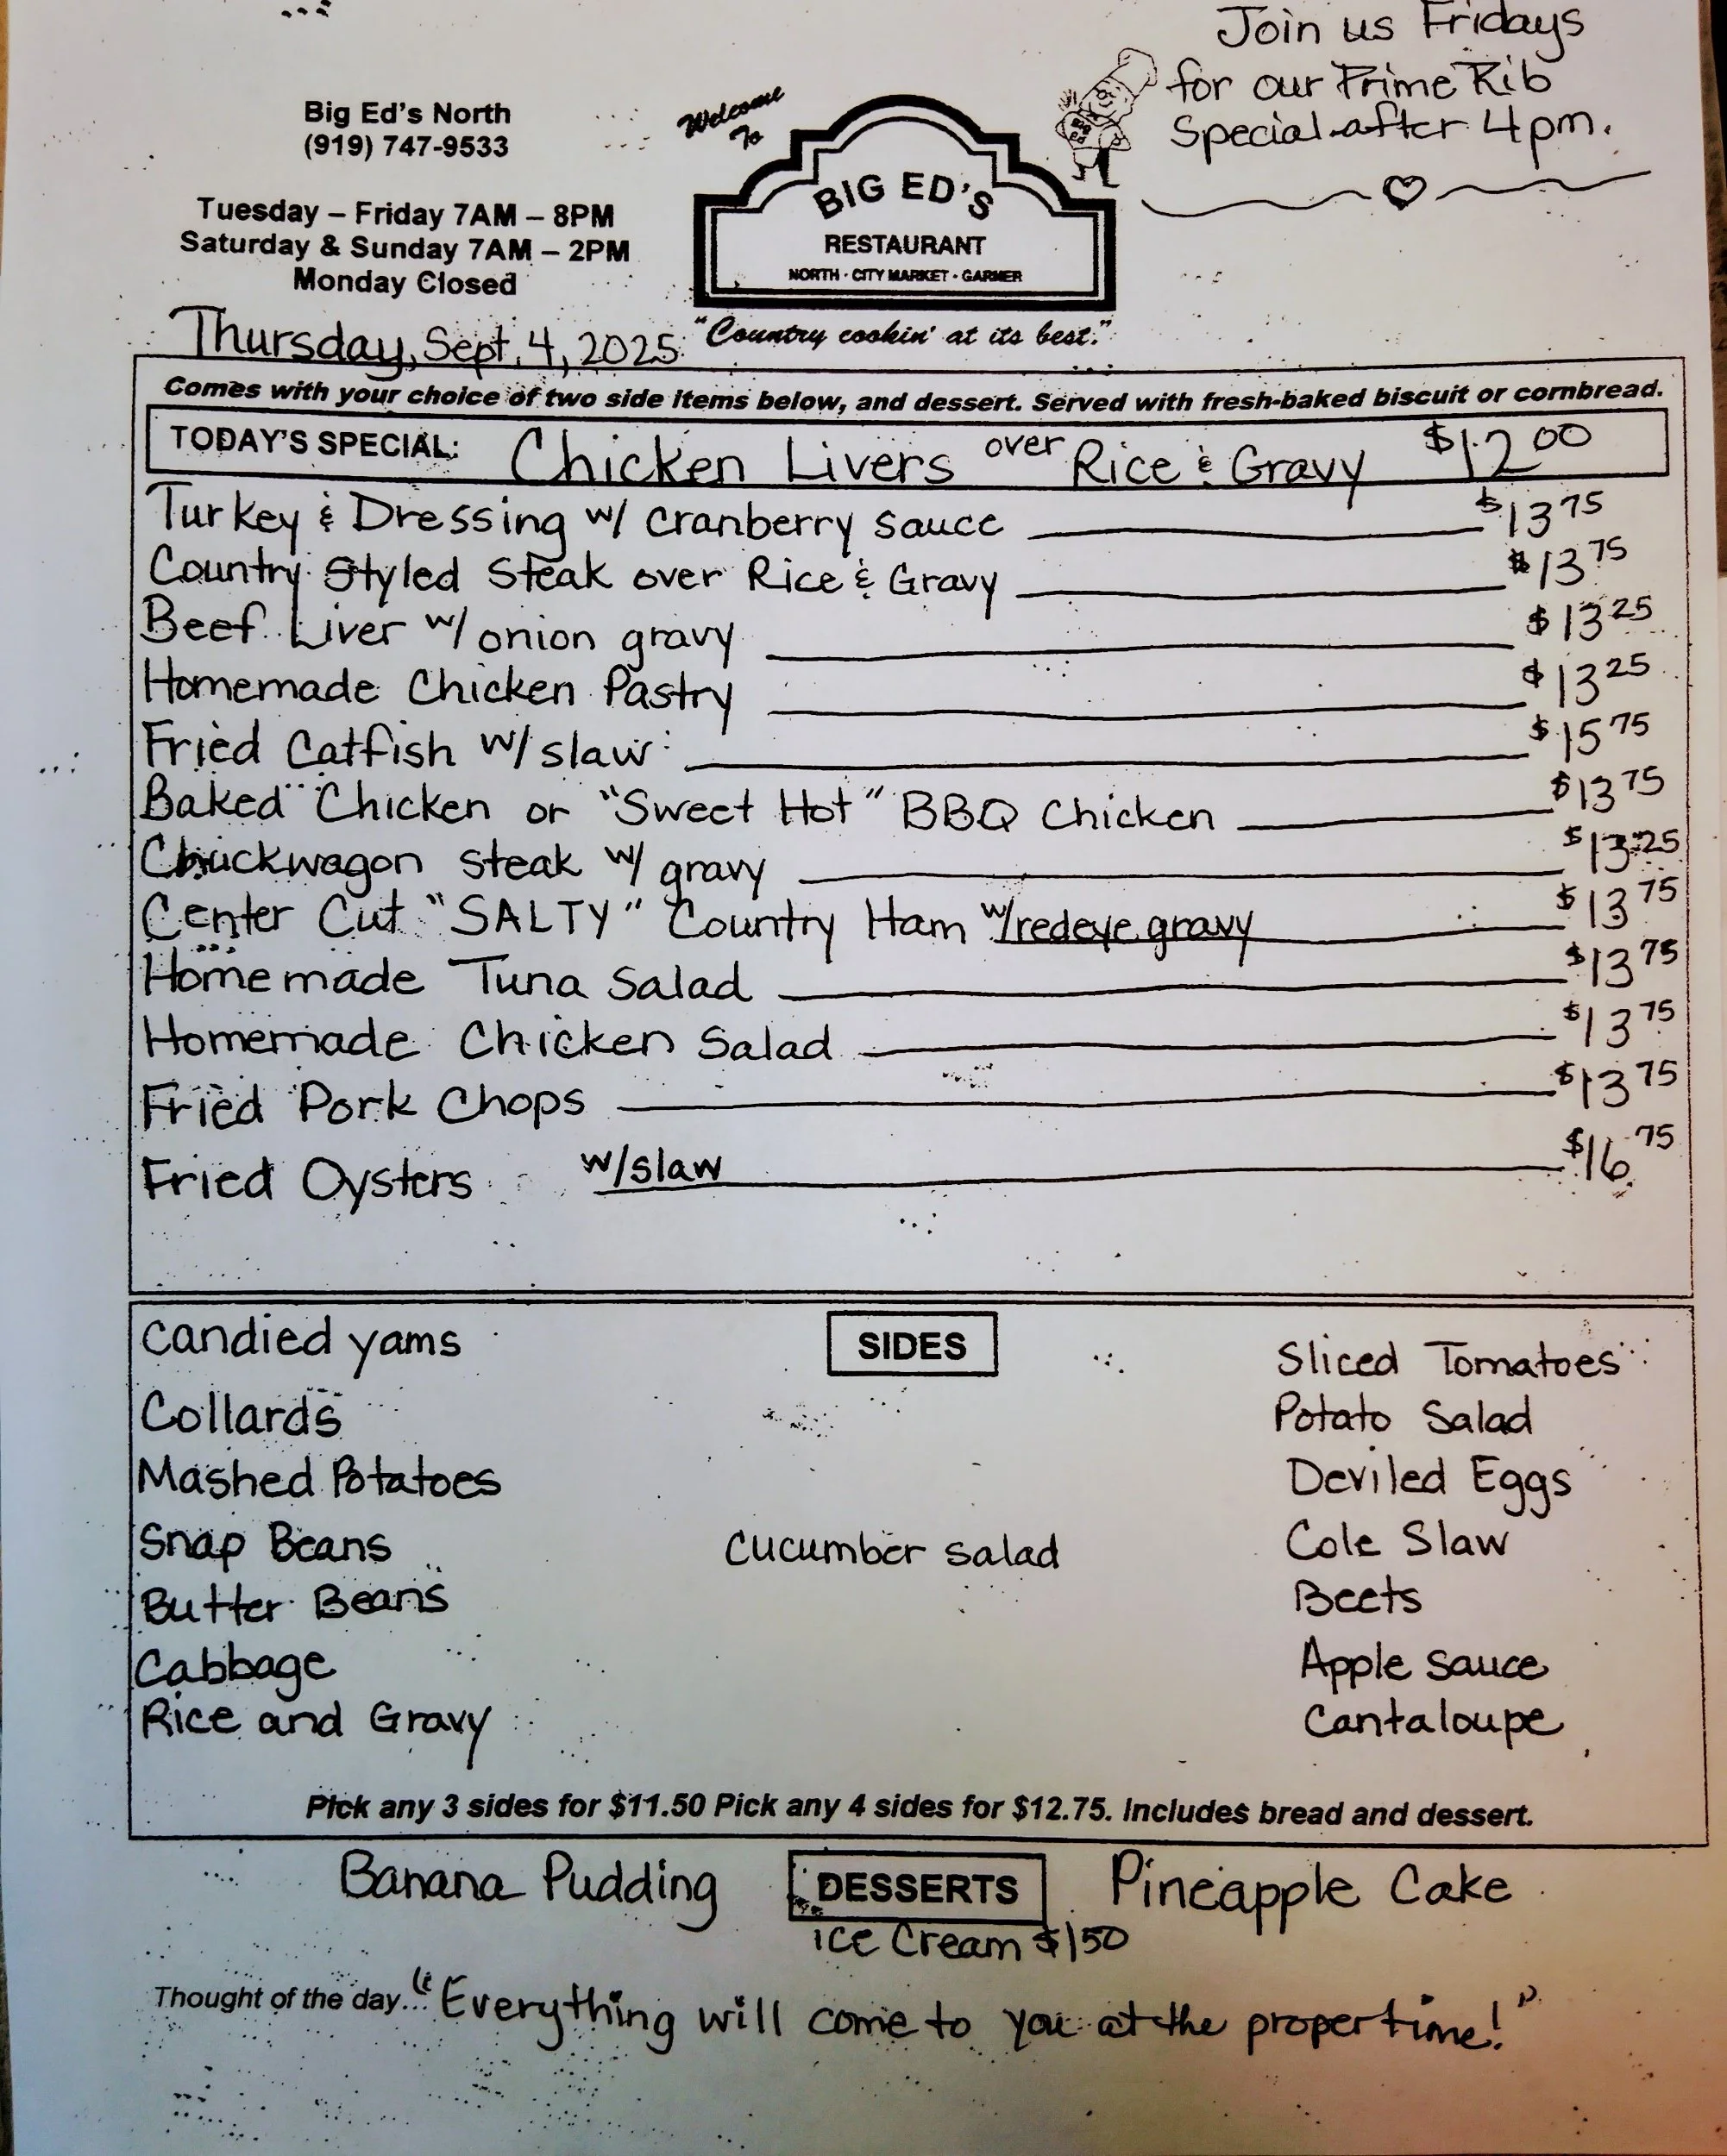 Join us Fridays
for our Prime Rib
Special after 4pm.
Big Ed's North
(919) 747-9533
Tuesday – Friday 7AM – 8PM
Saturday & Sunday 7AM – 2PM
Monday Closed
Welcome
To
BIG ED'S
RESTAURANT
NORTH · CITY MARKET · GARNER
"Country cookin' at its best."
Thursday, Sept. 4, 2025
Comes with your choice of two side items below, and dessert. Served with fresh-baked biscuit or cornbread.
TODAY'S SPECIAL: Chicken Livers over Rice & Gravy $12 00
Turkey & Dressing w/ cranberry sauce $13 75
Country Styled Steak over Rice & Gravy $13 75
Beef Liver w/ onion gravy $13 25
Homemade Chicken Pastry $13 25
Fried Catfish w/ slaw $15 75
Baked Chicken or "Sweet Hot" BBQ Chicken $13 75
Chuckwagon steak w/ gravy $13 25
Center Cut "SALTY" Country Ham w/redeye gravy $13 75
Homemade Tuna Salad $13 75
Homemade Chicken Salad $13 75
Fried Pork Chops $13 75
Fried Oysters w/slaw $16 75
SIDES
Candied yams
Collards
Mashed Potatoes
Snap Beans
Butter Beans
Cabbage
Rice and Gravy
Cucumber salad
Sliced Tomatoes
Potato Salad
Deviled Eggs
Cole Slaw
Beets
Apple sauce
Cantaloupe
Pick any 3 sides for $11.50 Pick any 4 sides for $12.75. Includes bread and dessert.
Banana Pudding DESSERTS Pineapple Cake
ice Cream $1 50
Thought of the day... "Everything will come to you at the proper time!"